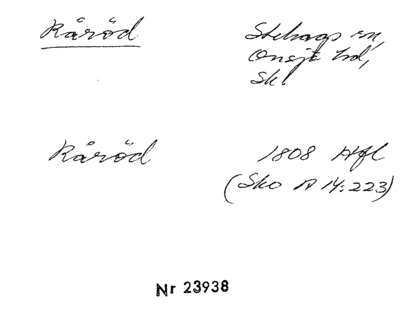 Råröd
Stehags sn,
Onsjö hd,
Skl
Råröd
1808 Hfl
(Sko A 14:223)
Nr 23938